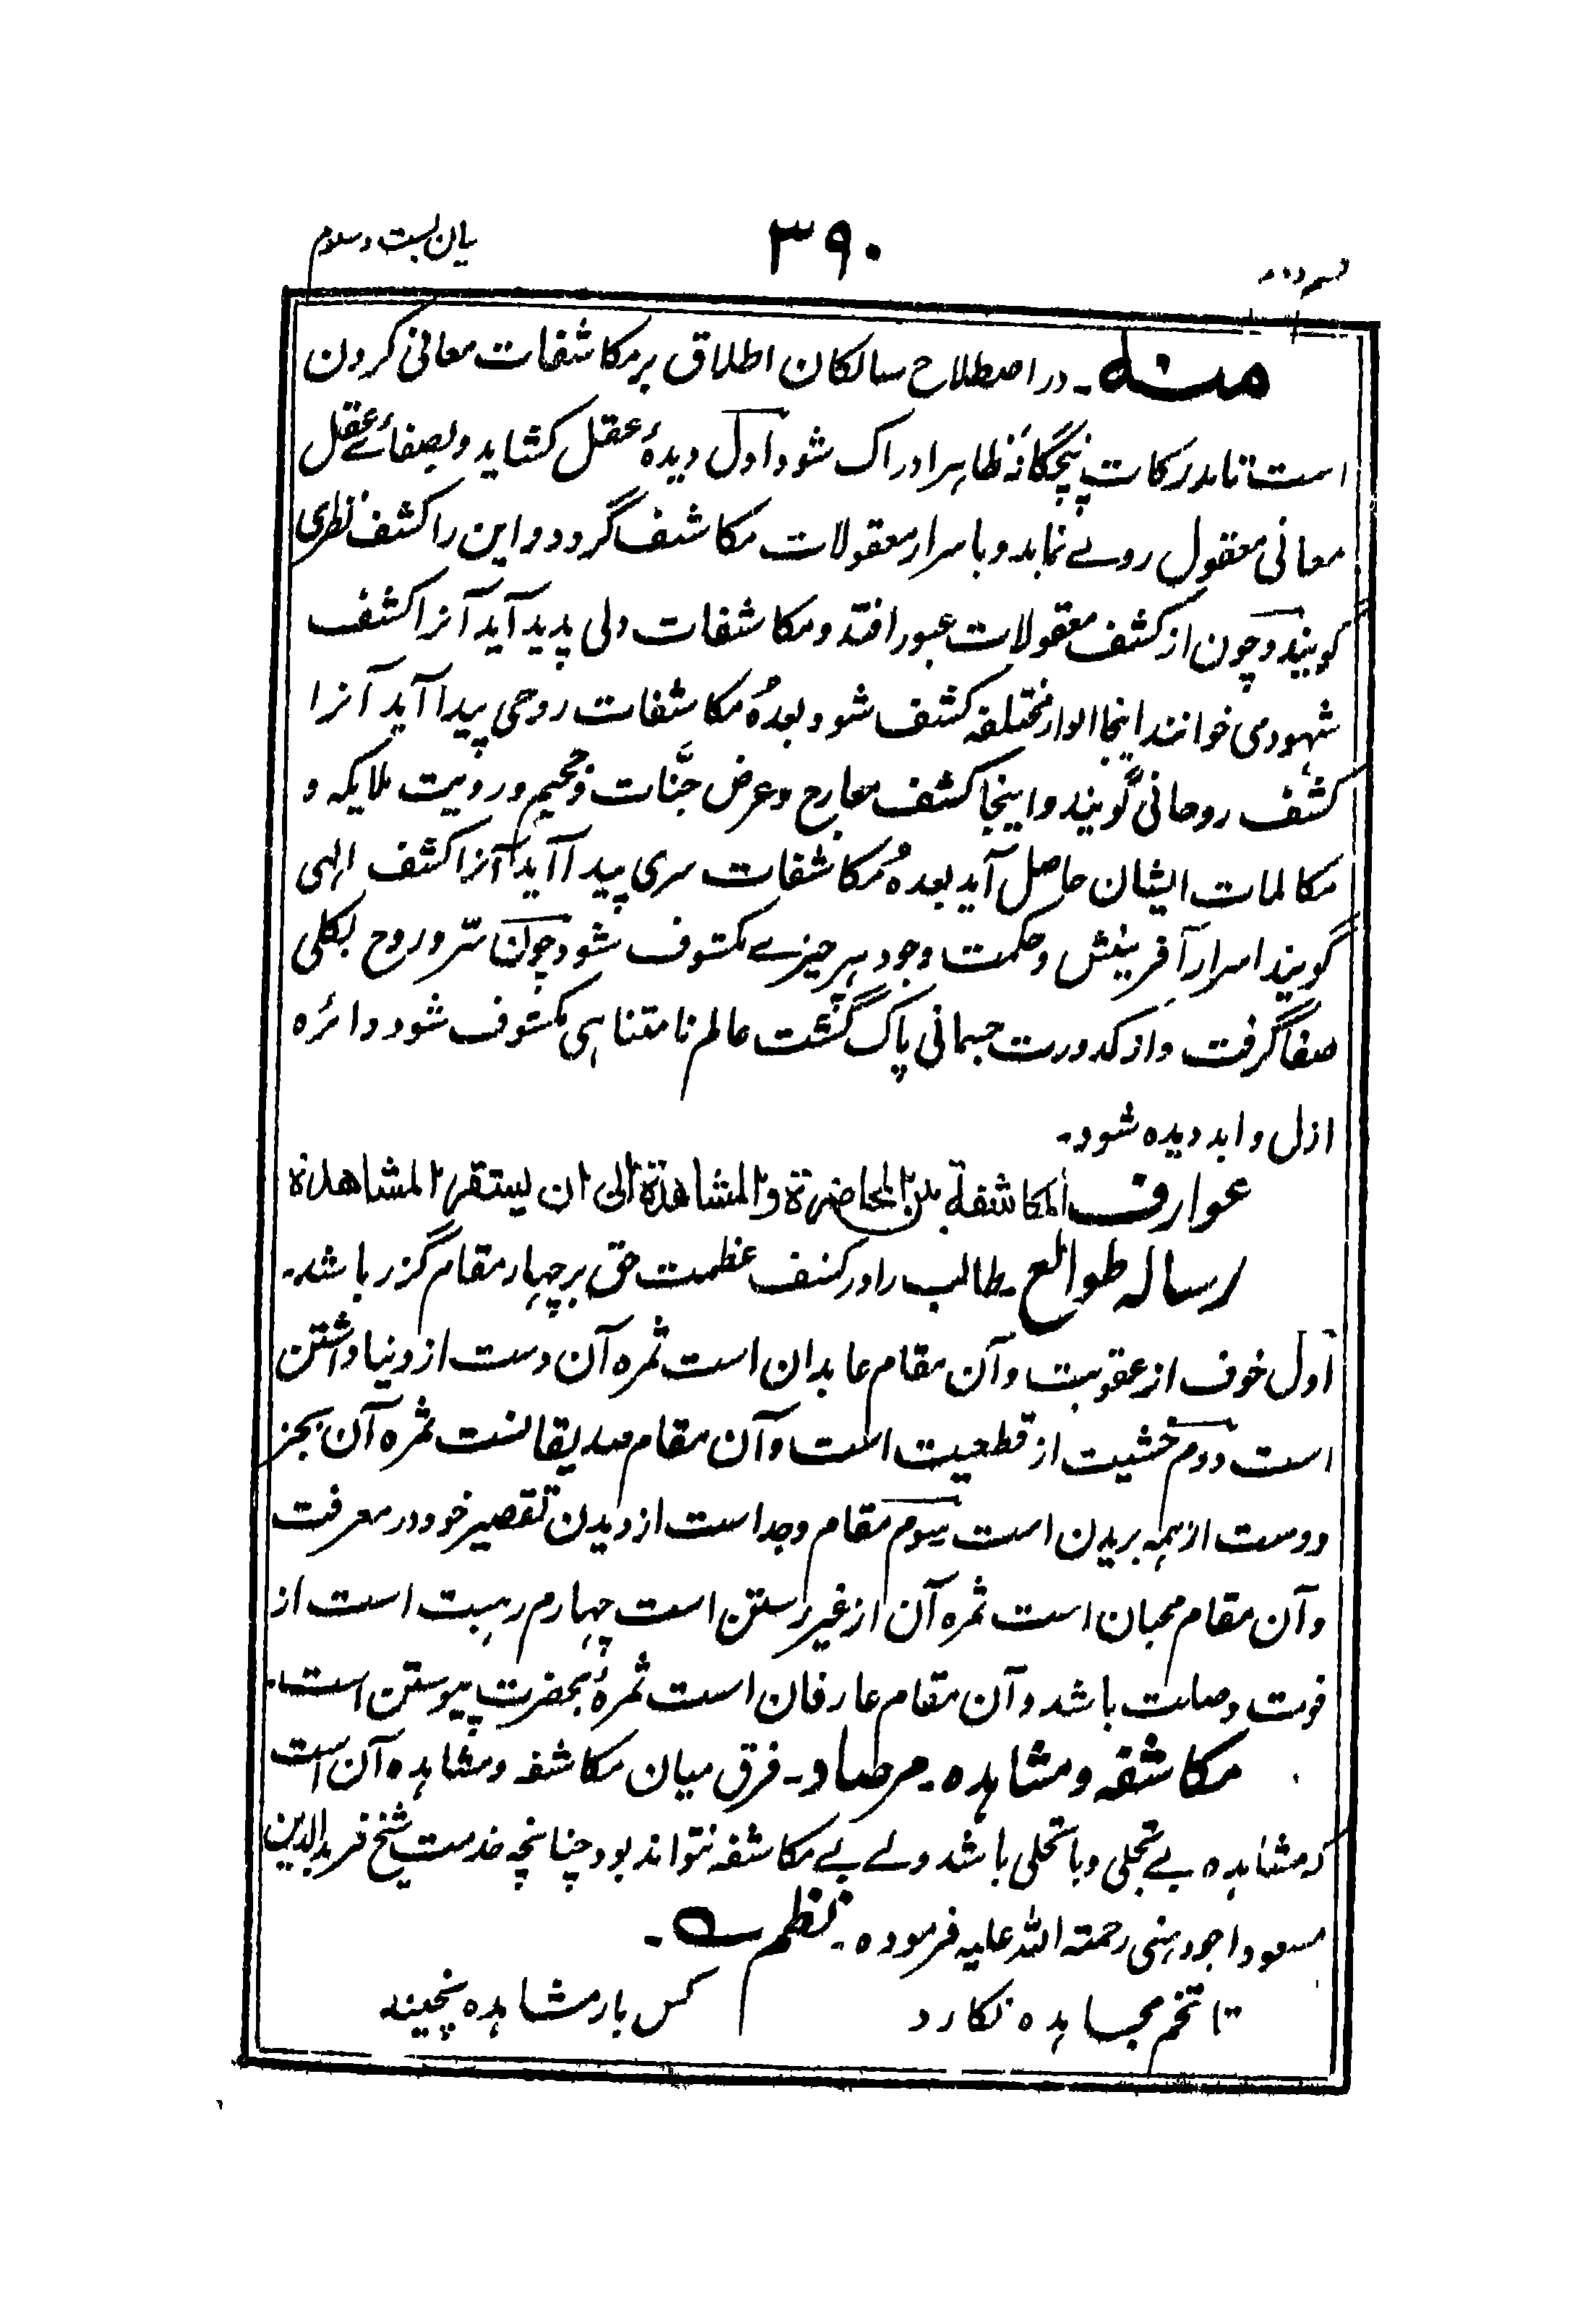 بیان بست و سوم
۳۹۰
منه۔ در اصطلاح سالکان اطلاق بر مکاشفات معانی کردن
است تا مدرکات پنجگانهٔ ظاہر ادراک شود اول دیدهٔ عقل کشاید و بصفائے عقل
معانی معقول روے نماید و باسرار معقولات مکاشف گردد و این را کشف نظری
گویند و چون از کشف معقولات عبور افتد و مکاشفات دلی پدید آید آنرا کشف
شہودی خوانند اینجا انوار مختلفہ کشف شود بعدهٗ مکاشفات روحی پیدا آید آنرا
کشف روحانی گویند و اینجا کشف معارج و عرض جنّات و جحیم و رویت ملایکہ و
مکالمات ایشان حاصل آید بعدهٗ مکاشفات سری پیدا آید آنرا کشف الہی
گویند اسرار آفرینش و حکمت وجود ہر چیزے مکشوف شود چون سّر و روح بکلی
صفا گرفت و از کدورت جسمانی پاک گشت عالم نامتناہی مکشوف شود دائرہ
ازل و ابد دیده شود۔
عوارف المکاشفة بین المحاضرة والمشاهدة الی ان یستقر المشاهدة
رسالہ طوالع۔ طالب را در کنف عظمت حق بر چہار مقام گزر باشد۔
اول خوف از عقوبت و آن مقام عابدان است ثمره آن دست از دنیا داشتن
است دوم خشیت از قطعیت است و آن مقام صدیقانست ثمره آن بجز
دوست از ہمہ بریدن است سوم مقام وجد است از دیدن تقصیر خود در معرفت
و آن مقام محبان است ثمره آن از غیر رستن است چہارم رہبت است از
فوت وصلت باشد و آن مقام عارفان است ثمرهٔ بحضرت پیوستن است۔
مکاشفہ و مشاہدہ۔ مرصاد۔ فرق میان مکاشفہ و مشاہدہ آن است
کہ مشاہدہ بے تجلی و با تجلی باشد ولے بے مکاشفہ نتواند بود چنانچہ خدمت شیخ فرید الدین
مسعود اجودہنی رحمتہ اللہ علیہ فرمودہ۔ نظم۔
تا تخم مجاہدہ نکارد
کس بار مشاہدہ نچیند